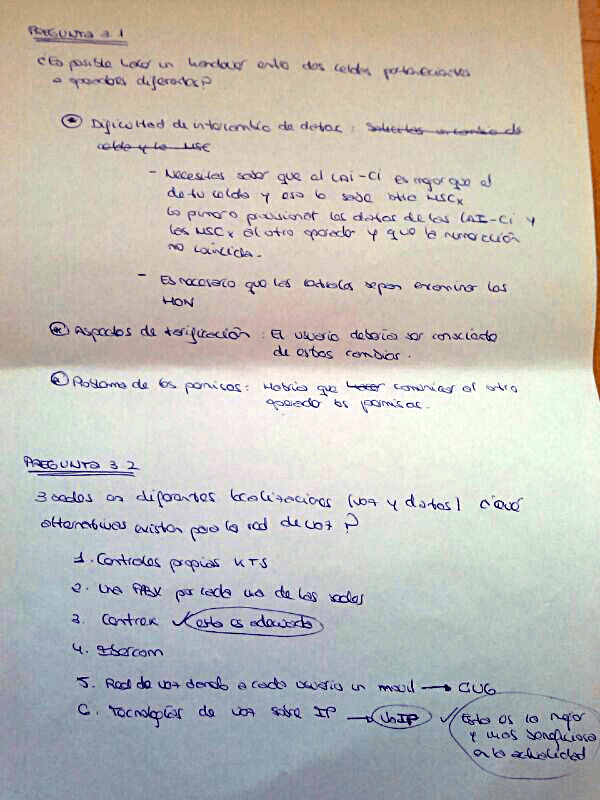 PREGUNTA 3.1
¿Es posible hacer un handover entre dos celdas pertenecientes
a operadores diferentes?
* Dificultad de intercambio de datos: Solicitar un cambio de
celda y la MSC
- Necesitas saber que el LAI-Ci es mejor que el
de tu celda y eso lo sabe otra MSCx
Lo primero provisionar los datos de las LAI-Ci y
las MSCx al otro operador y que la numeración
no coincida.
- Es necesario que las centrales sepan examinar las
HON
* Aspectos de tarificación: El usuario debería ser consciente
de estos cambios.
* Problema de los permisos: Habría que hacer comunicar al otro
operador los permisos.
PREGUNTA 3.2
3 sedes en diferentes localizaciones (voz y datos) ¿Qué
alternativas existen para la red de voz?
1. Controles propios KTS
2. Una PABX por cada una de las sedes
3. Centrex ✓ esto es adecuado
4. Ibercom
5. Red de voz dando a cada usuario un movil → CUG
6. Tecnologías de voz sobre IP → VoIP ✓ Esta es la mejor
y más beneficiosa
en la actualidad